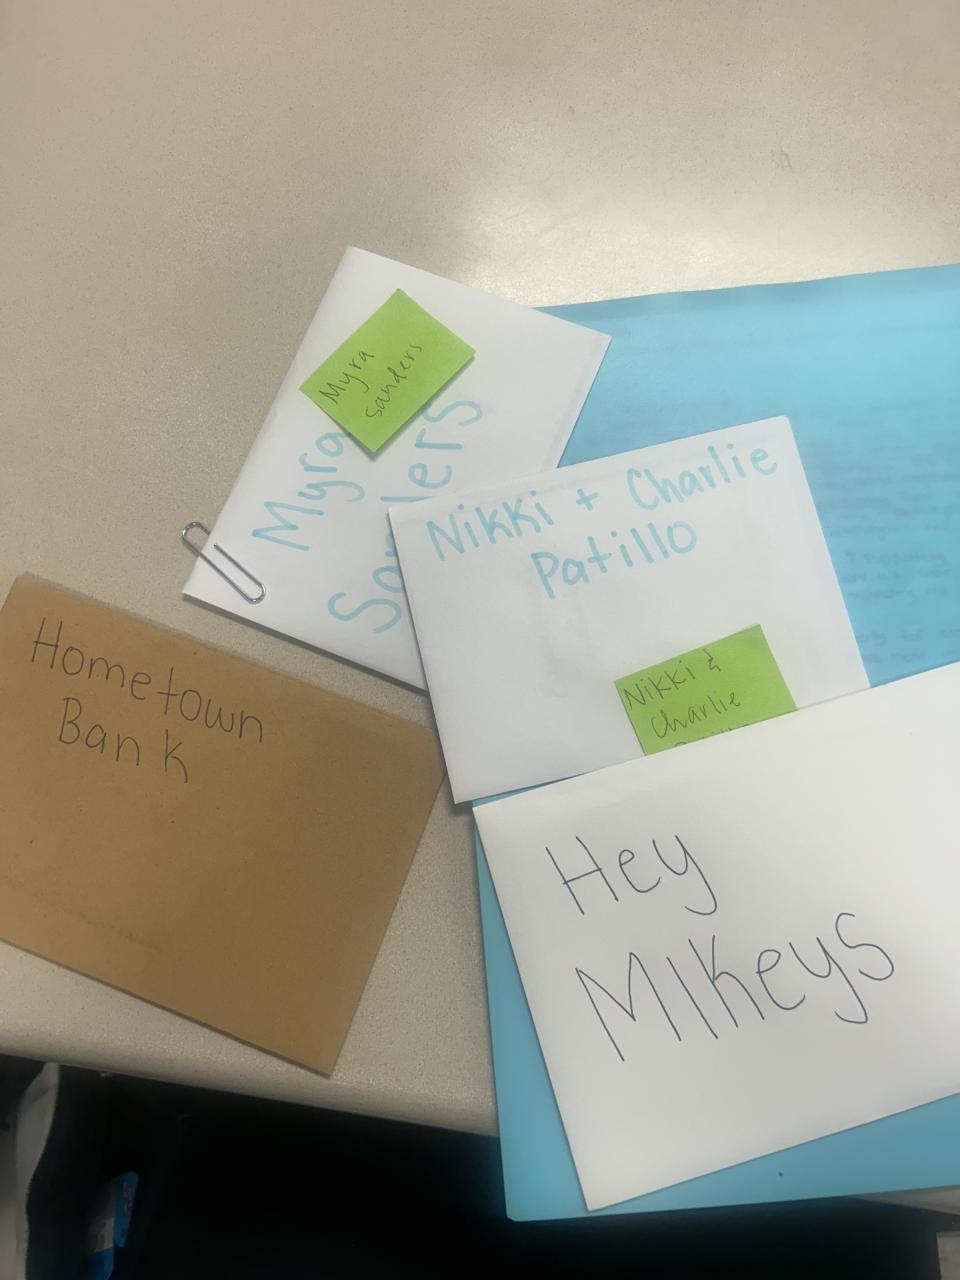 Myra
sanders
Myra
Nikki + Charlie
Patillo
Nikki &
Charlie
Hometown
Bank
Hey
MIKeys